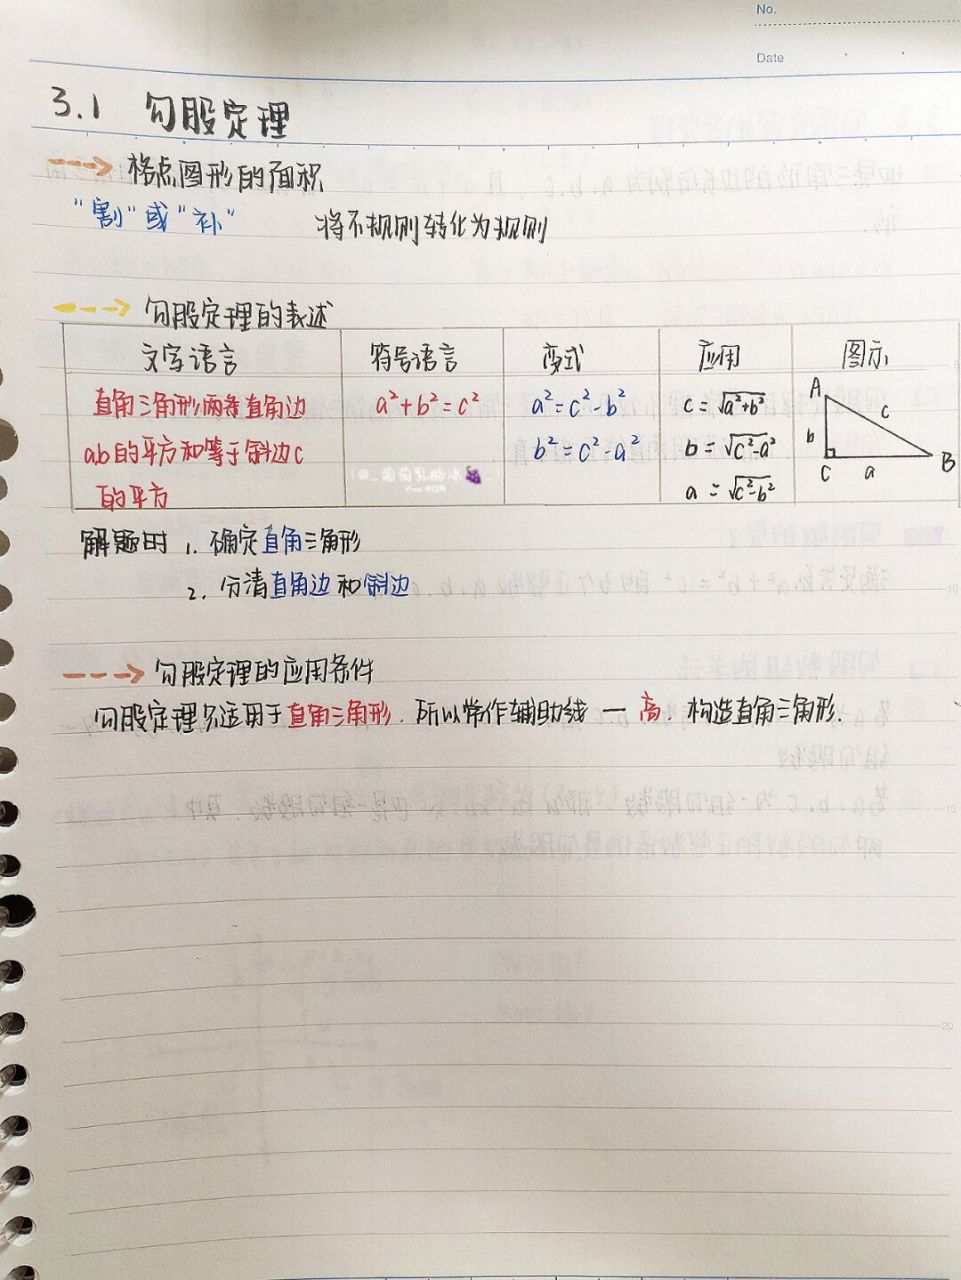 No.
Date
3.1 勾股定理
格点图形的面积
"割"或"补" 将不规则转化为规则
勾股定理的表述
文字语言 符号语言 变式 应用 图示
直角三角形两条直角边 a²+b²=c² a²=c²-b² c=√a²+b²
a,b的平方和等于斜边c b²=c²-a² b=√c²-a²
的平方 a=√c²-b²
A
c
b
C a B
@_葡萄乳酪冰🍇
解题时 1. 确定直角三角形
2. 分清直角边和斜边
勾股定理的应用条件
勾股定理只适用于直角三角形.所以常作辅助线一高.构造直角三角形.